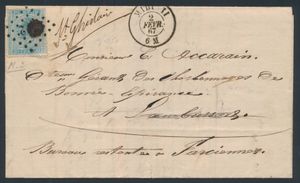 St Ghislain
MIDI II
2
FEVR
67
6 M
Monsieur E. Accarain
Gérant des Charbonnages de
Bonne Espérance
à Lambusart
Bureau restante à Farciennes